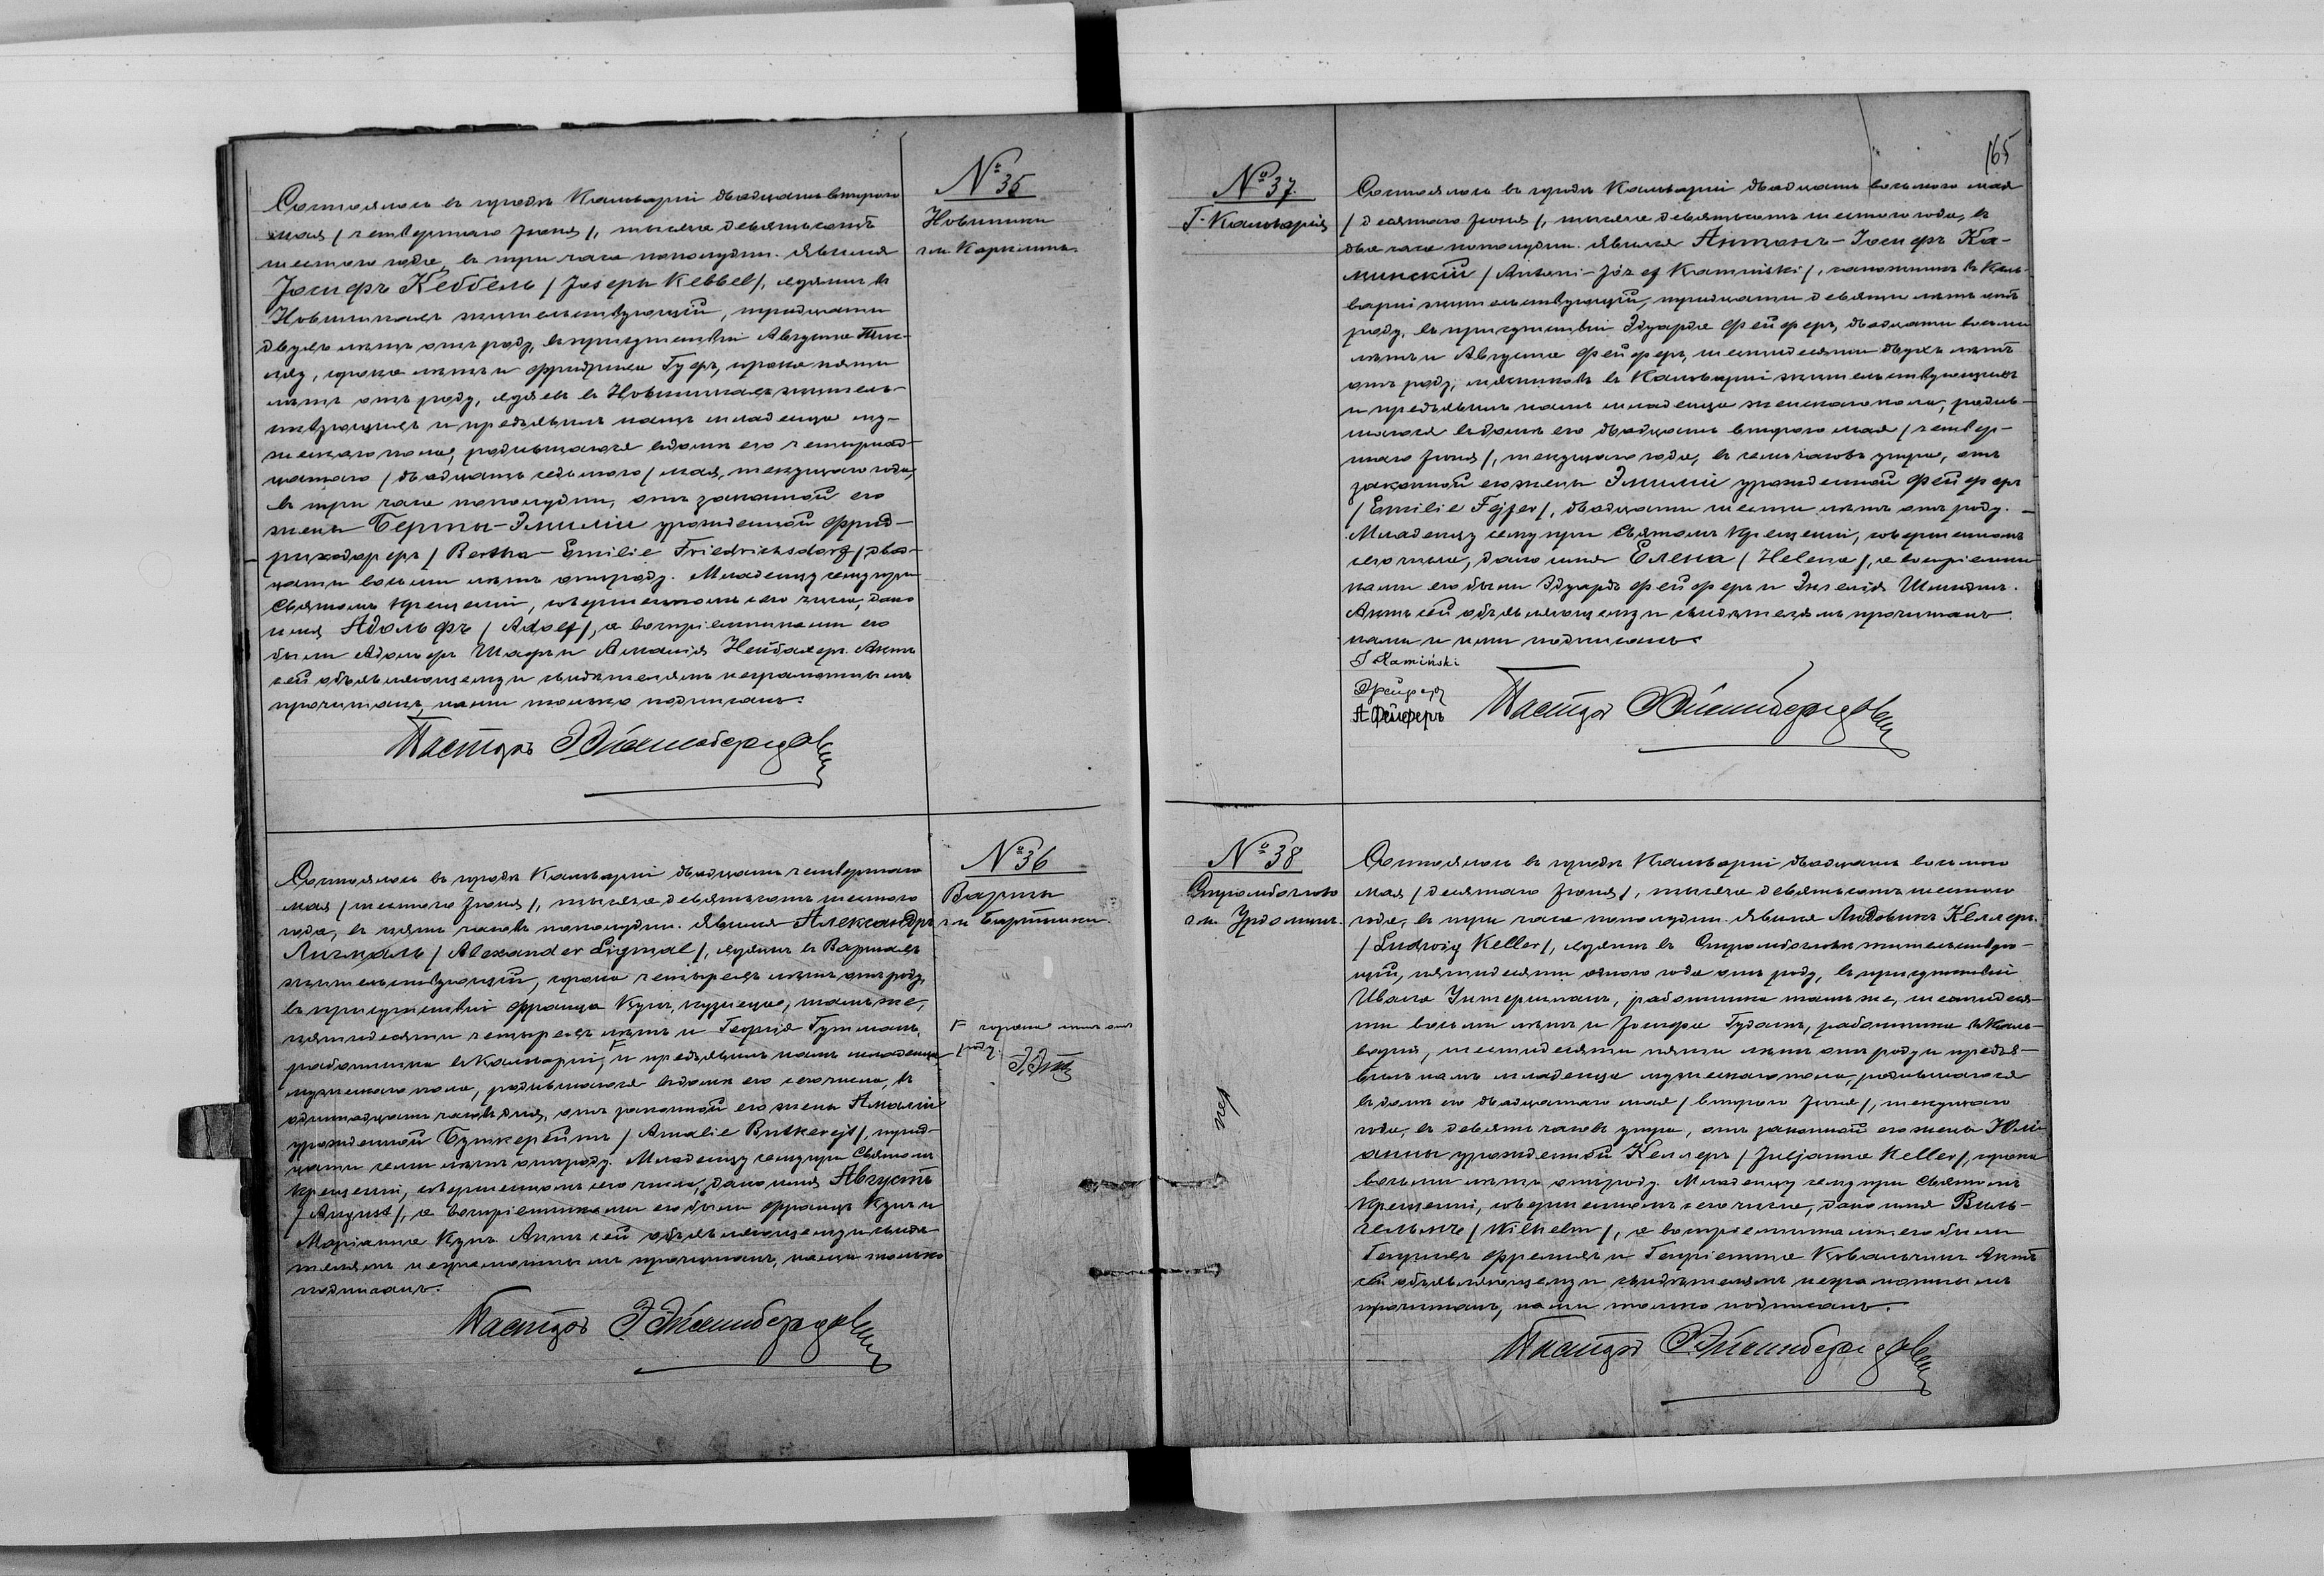 № 35
Новиники
гм. Карклины
Состоялось въ городѣ Кальваріи двадцать втораго
мая / четвертаго Іюня /, тысяча девятьсотъ
шестого года, въ три часа пополудни. Явился
Іосифъ Кеббель / Joseph Kebbel /, въ
Новиникахъ жительствующій, тридцати
двухъ лѣтъ отъ роду, въ присутствіи Августа
сорока лѣтъ и Фридриха Гуфъ, сорока пяти
лѣтъ отъ роду, въ Новиникахъ житель-
ствующихъ и предъявилъ намъ младенца му-
жескаго пола, родившагося въ домѣ его четырнад-
цатаго / двадцать седьмого / мая, текущаго года,
въ три часа пополудни, отъ законной его
жены Берты-Эмиліи урожденной Фрид-
рихсдорфъ / Bertha-Emilie Friedrichsdorf / двад-
цати восьми лѣтъ отъ роду. Младенцу сему при
Святомъ Крещеніи, совершенномъ сего числа, дано
имя Адольфъ / Adolf /, а воспріемниками его
были Адольфъ Шафъ и Амалія Нейбахеръ. Актъ
сей объявляющему и свидѣтелямъ неграмотнымъ
прочитанъ, нами только подписанъ.
Пасторъ
№ 36
Варты
гм. Бартники
Состоялось въ городѣ Кальваріи двадцать четвертаго
мая / шестого Іюня /, тысяча девятьсотъ шестого
года, въ пять часовъ пополудни. Явился Александръ
Лигмаль / Alexander Ligmal /, въ Вартахъ
жительствующій, сорока четырехъ лѣтъ отъ роду,
въ присутствіи Франца Кунъ, кузнеца, тамъ же,
пятидесяти четырехъ лѣтъ и Георгія Гутманъ,
работника въ Кальваріи, и предъявилъ намъ младенца
мужескаго пола, родившагося въ домѣ его сего числа, въ
одиннадцать часовъ дня, отъ законной его жены Амаліи
урожденной Буткерейтъ / Amalie Butkerejt /, трид-
цати семи лѣтъ отъ роду. Младенцу сему при Святомъ
Крещеніи, совершенномъ сего числа, дано имя Августъ
/ August /, а воспріемниками его были Францъ Кунъ и
Маріанна Кунъ. Актъ сей объявляющему и свидѣ-
телямъ неграмотнымъ прочитанъ, нами только
подписанъ.
сорока лѣтъ отъ
роду.
Пасторъ
165
№ 37.
Г. Кальварія
Состоялось въ городѣ Кальваріи двадцать восьмого мая
/ десятаго Іюня /, тысяча девятьсотъ шестого года, въ
два часа пополудни. Явился Антонъ-Іосифъ Ка-
минскій / Antoni-Józef Kaminski /, сапожникъ въ Каль-
варіи жительствующій, тридцати девяти лѣтъ отъ
роду, въ присутствіи Эдуарда Фейферъ, двадцати восьми
лѣтъ и Августа Фейферъ, шестидесяти двухъ лѣтъ
отъ роду, мясниковъ въ Кальваріи жительствующихъ
и предъявилъ намъ младенца женскаго пола, родив-
шагося въ домѣ его двадцать втораго мая / четвер-
таго Іюня /, текущаго года, въ семь часовъ утра, отъ
законной его жены Эмиліи урожденной Фейферъ
/ Emilie Fejfer /, двадцати шести лѣтъ отъ роду.
Младенцу сему при Святомъ Крещеніи, совершенномъ
сего числа, дано имя Елена / Helena /, а воспріемни-
ками его были Эдуардъ Фейферъ и Эмилія Шмидтъ.
Актъ сей объявляющему и свидѣтелямъ прочитанъ
нами и ими подписанъ.
J Kamiński
ЭФейферъ
А Фейферъ
Пасторъ
№ 38
гм. Удромин.
Состоялось въ городѣ Кальваріи двадцать восьмого
мая / десятаго Іюня /, тысяча девятьсотъ шестого
года, въ три часа пополудни. Явился Людовикъ Келлеръ
/ Ludwig Keller /, въ жительствую-
щій, пятидесяти одного года отъ роду, въ присутствіи
Ивана Унтерманъ, работника тамъ же, шестидеся-
ти восьми лѣтъ и Іосифа Гудатъ, работника въ Каль-
варіи, шестидесяти пяти лѣтъ отъ роду и предъя-
вилъ намъ младенца мужескаго пола, родившагося
въ домѣ его двадцатаго мая / втораго Іюня /, текущаго
года, въ девять часовъ утра, отъ законной его жены Юлі-
анны урожденной Келлеръ / Juljanna Keller /, сорока
восьми лѣтъ отъ роду. Младенцу сему при Святомъ
Крещеніи, совершенномъ сего числа, дано имя Виль-
гельмъ / Wilhelm /, а воспріемниками его были
Генрихъ и Генріетта Ковальчикъ. Актъ
сей объявляющему и свидѣтелямъ неграмотнымъ
прочитанъ, нами только подписанъ.
Пасторъ